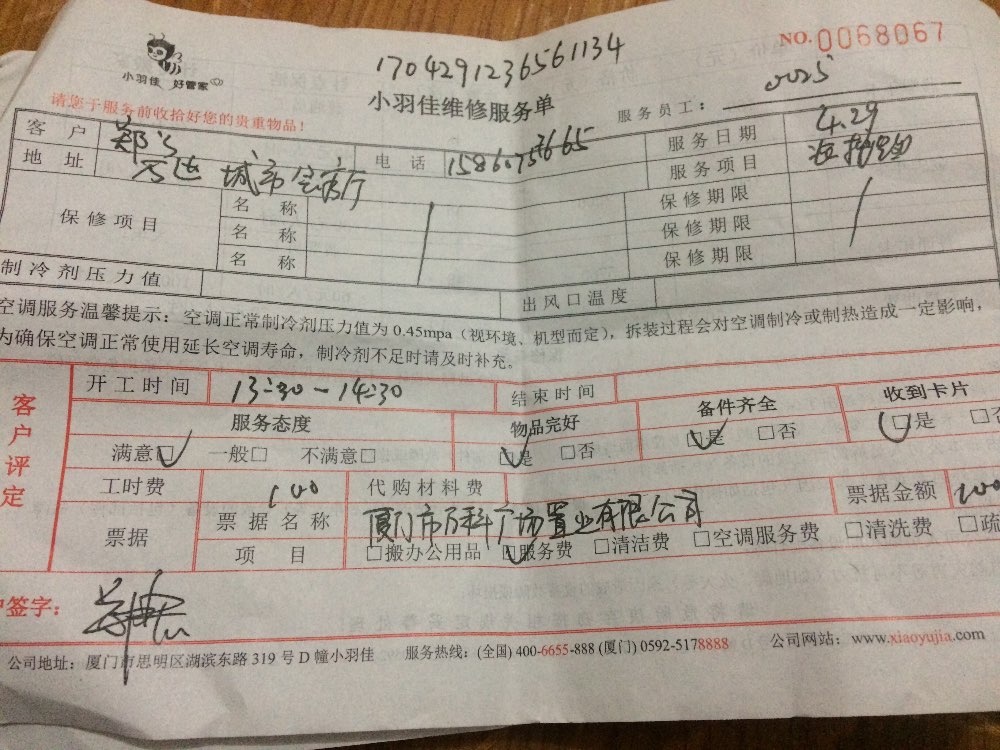 NO.0068067
1704291236561134
小羽佳 好管家
小羽佳维修服务单
服务员工： 0025
请您于服务前收拾好您的贵重物品！
客户 郑 电话 服务日期 4.29
地址 城市会客厅 服务项目
保修项目 名称 保修期限
名称 保修期限
名称 保修期限
制冷剂压力值 出风口温度
空调服务温馨提示：空调正常制冷剂压力值为 0.45mpa（视环境、机型而定），拆装过程会对空调制冷或制热造成一定影响，
为确保空调正常使用延长空调寿命，制冷剂不足时请及时补充。
客户评定
开工时间 13:30-14:30 结束时间
服务态度 物品完好 备件齐全 收到卡片
满意□ 一般□ 不满意□ □是 □否 □是 □否 □是 □否
工时费 100 代购材料费 票据金额 100
票据 票据名称 厦门市万科广场置业有限公司
项目 □搬办公用品 □服务费 □清洁费 □空调服务费 □清洗费 □疏
户签字：
公司地址：厦门市思明区湖滨东路 319 号 D 幢小羽佳 服务热线：(全国) 400-6655-888 (厦门) 0592-5178888 公司网站：www.xiaoyujia.com